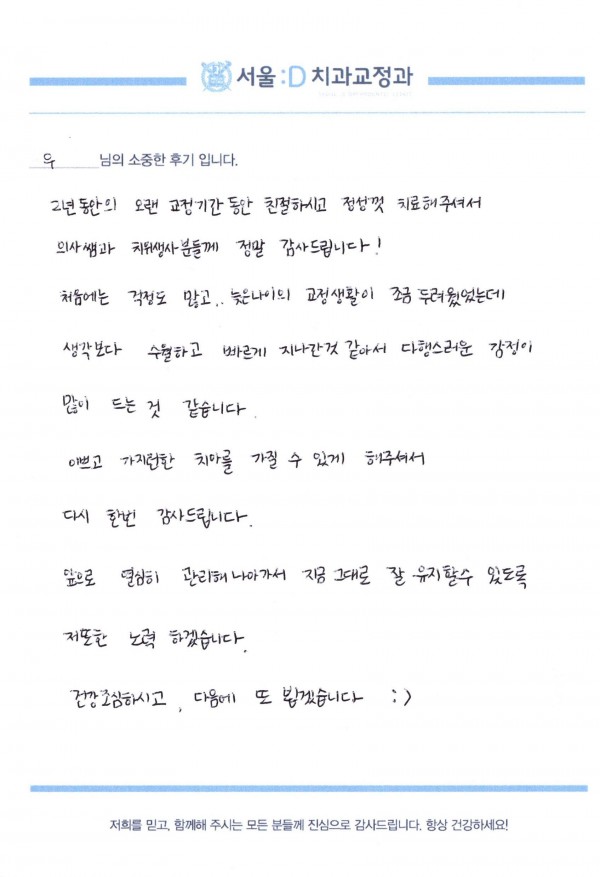 서울:D 치과교정과
우 님의 소중한 후기 입니다.
2년동안의 오랜 교정기간 동안 친절하시고 정성껏 치료해주셔서
의사쌤과 치위생사분들께 정말 감사드립니다!
처음에는 걱정도 많고.. 늦은나이의 교정생활이 조금 두려웠었는데
생각보다 수월하고 빠르게 지나간것 같아서 다행스러운 감정이
많이 드는 것 같습니다.
이쁘고 가지런한 치아를 가질 수 있게 해주셔서
다시 한번 감사드립니다.
앞으로 열심히 관리해나아가서 지금 그대로 잘 유지할수 있도록
저또한 노력 하겠습니다.
건강조심하시고, 다음에 또 뵙겠습니다 :)
저희를 믿고, 함께해 주시는 모든 분들께 진심으로 감사드립니다. 항상 건강하세요!